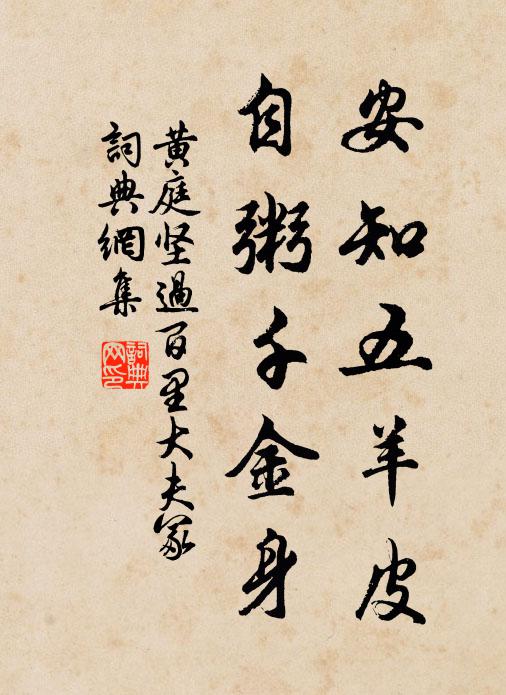 安知五羊皮
自粥千金身
黄庭坚過百里大夫冢
詞典網集
詞典網印